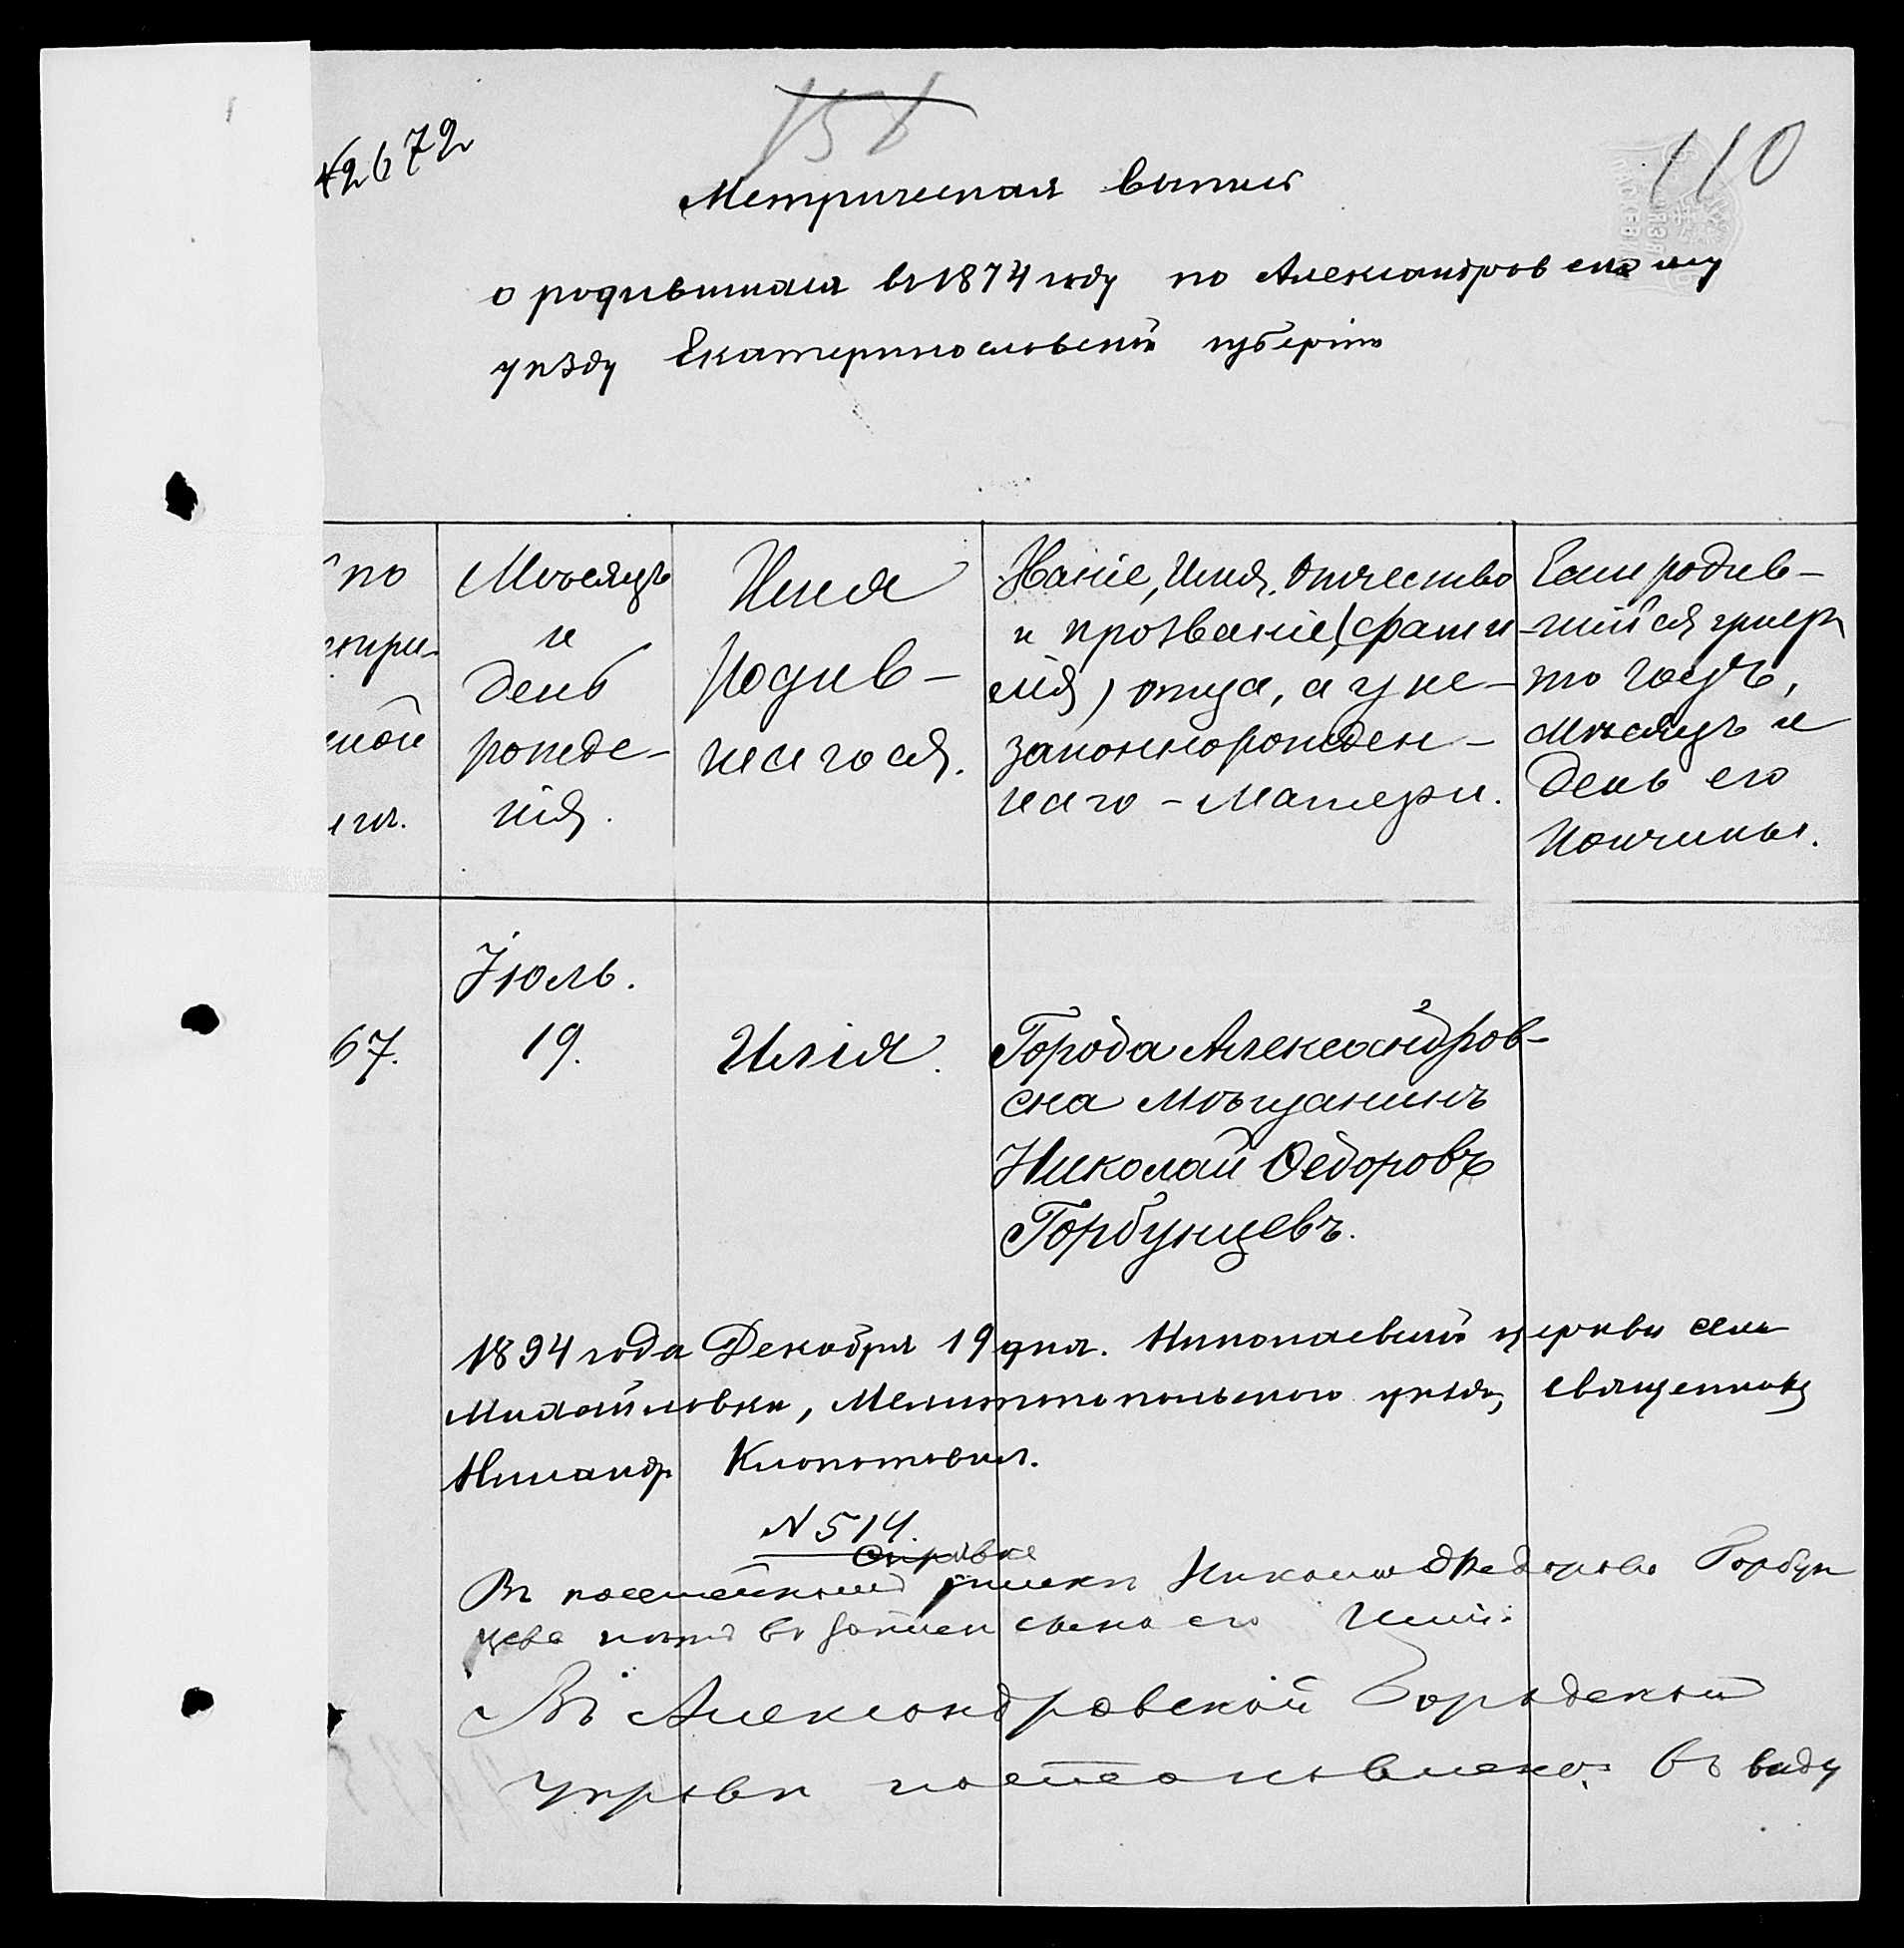 151
110
42672
Метрическая выпись
о родившихся въ 1874 году по Александровскому
уѣзду Екатеринославской губерніи
по
метри-
ской
Мѣсяцъ
и
день
рожде-
нія.
Имя
родив-
шагося.
Званіе, Имя, Отчество
и прозваніе (фами
лія) отца, а у не-
законнорожден-
наго - Матери.
Если родив-
-шійся умеръ
то годъ,
мѣсяцъ и
день его
кончины.
67.
Іюль.
19.
Илія.
Города Александров-
ска мѣщанинъ
Николай Ѳедоровъ
Горбунцевъ.
1894 года Декабря 19 дня. Николаевской церкви села
Михайловки, Мелитопольскаго уѣзда, священникъ
Никандр Клопотовскі.
N 514.
Справка
Въ посемейномъ спискѣ Николая Федорова Горбун
цева сына его Иліи.
Въ Александровской Городской
Управѣ постановлено: въ виду